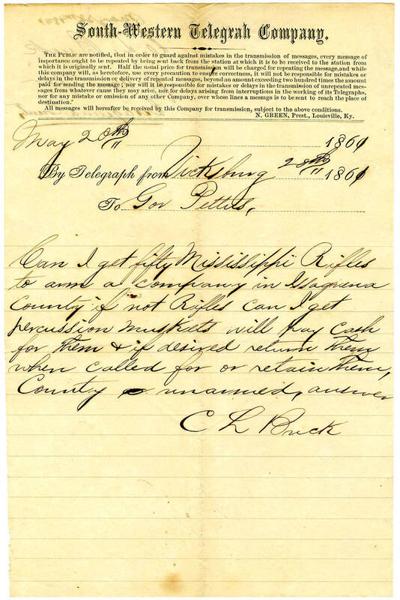 South-Western Telegrah Company.
THE PUBLIC are notified, that in order to guard against mistakes in the transmission of messages, every message of
importance ought to be repeated by being sent back from the station at which it is to be received to the station from
which it is originally sent. Half the usual price for transmission will be charged for repeating the message, and while
this company will, as heretofore, use every precaution to ensure correctness, it will not be responsible for mistakes or
delays in the transmission or delivery of repeated messages, beyond an amount exceeding two hundred times the amount
paid for sending the message; nor will it be responsible for mistakes or delays in the transmission of unrepeated mes-
sages from whatever cause they may arise, nor for delays arising from interruptions in the working of its Telegraphs,
nor for any mistake or omission of any other Company, over whose lines a message is to be sent to reach the place of
destination.
All messages will hereafter be received by this Company for transmission, subject to the above conditions.
N. GREEN, Prest., Louisville, Ky.
May 20th 1861
By Telegraph from Vicksburg 20th 1861
To Gov Pettus,
Can I get fifty Mississippi Rifles
to arm a company in Issaquena
County if not Rifles can I get
percussion muskets will pay cash
for them & if desired return them
when called for or retain them,
County unarmed, answer
C L Buck